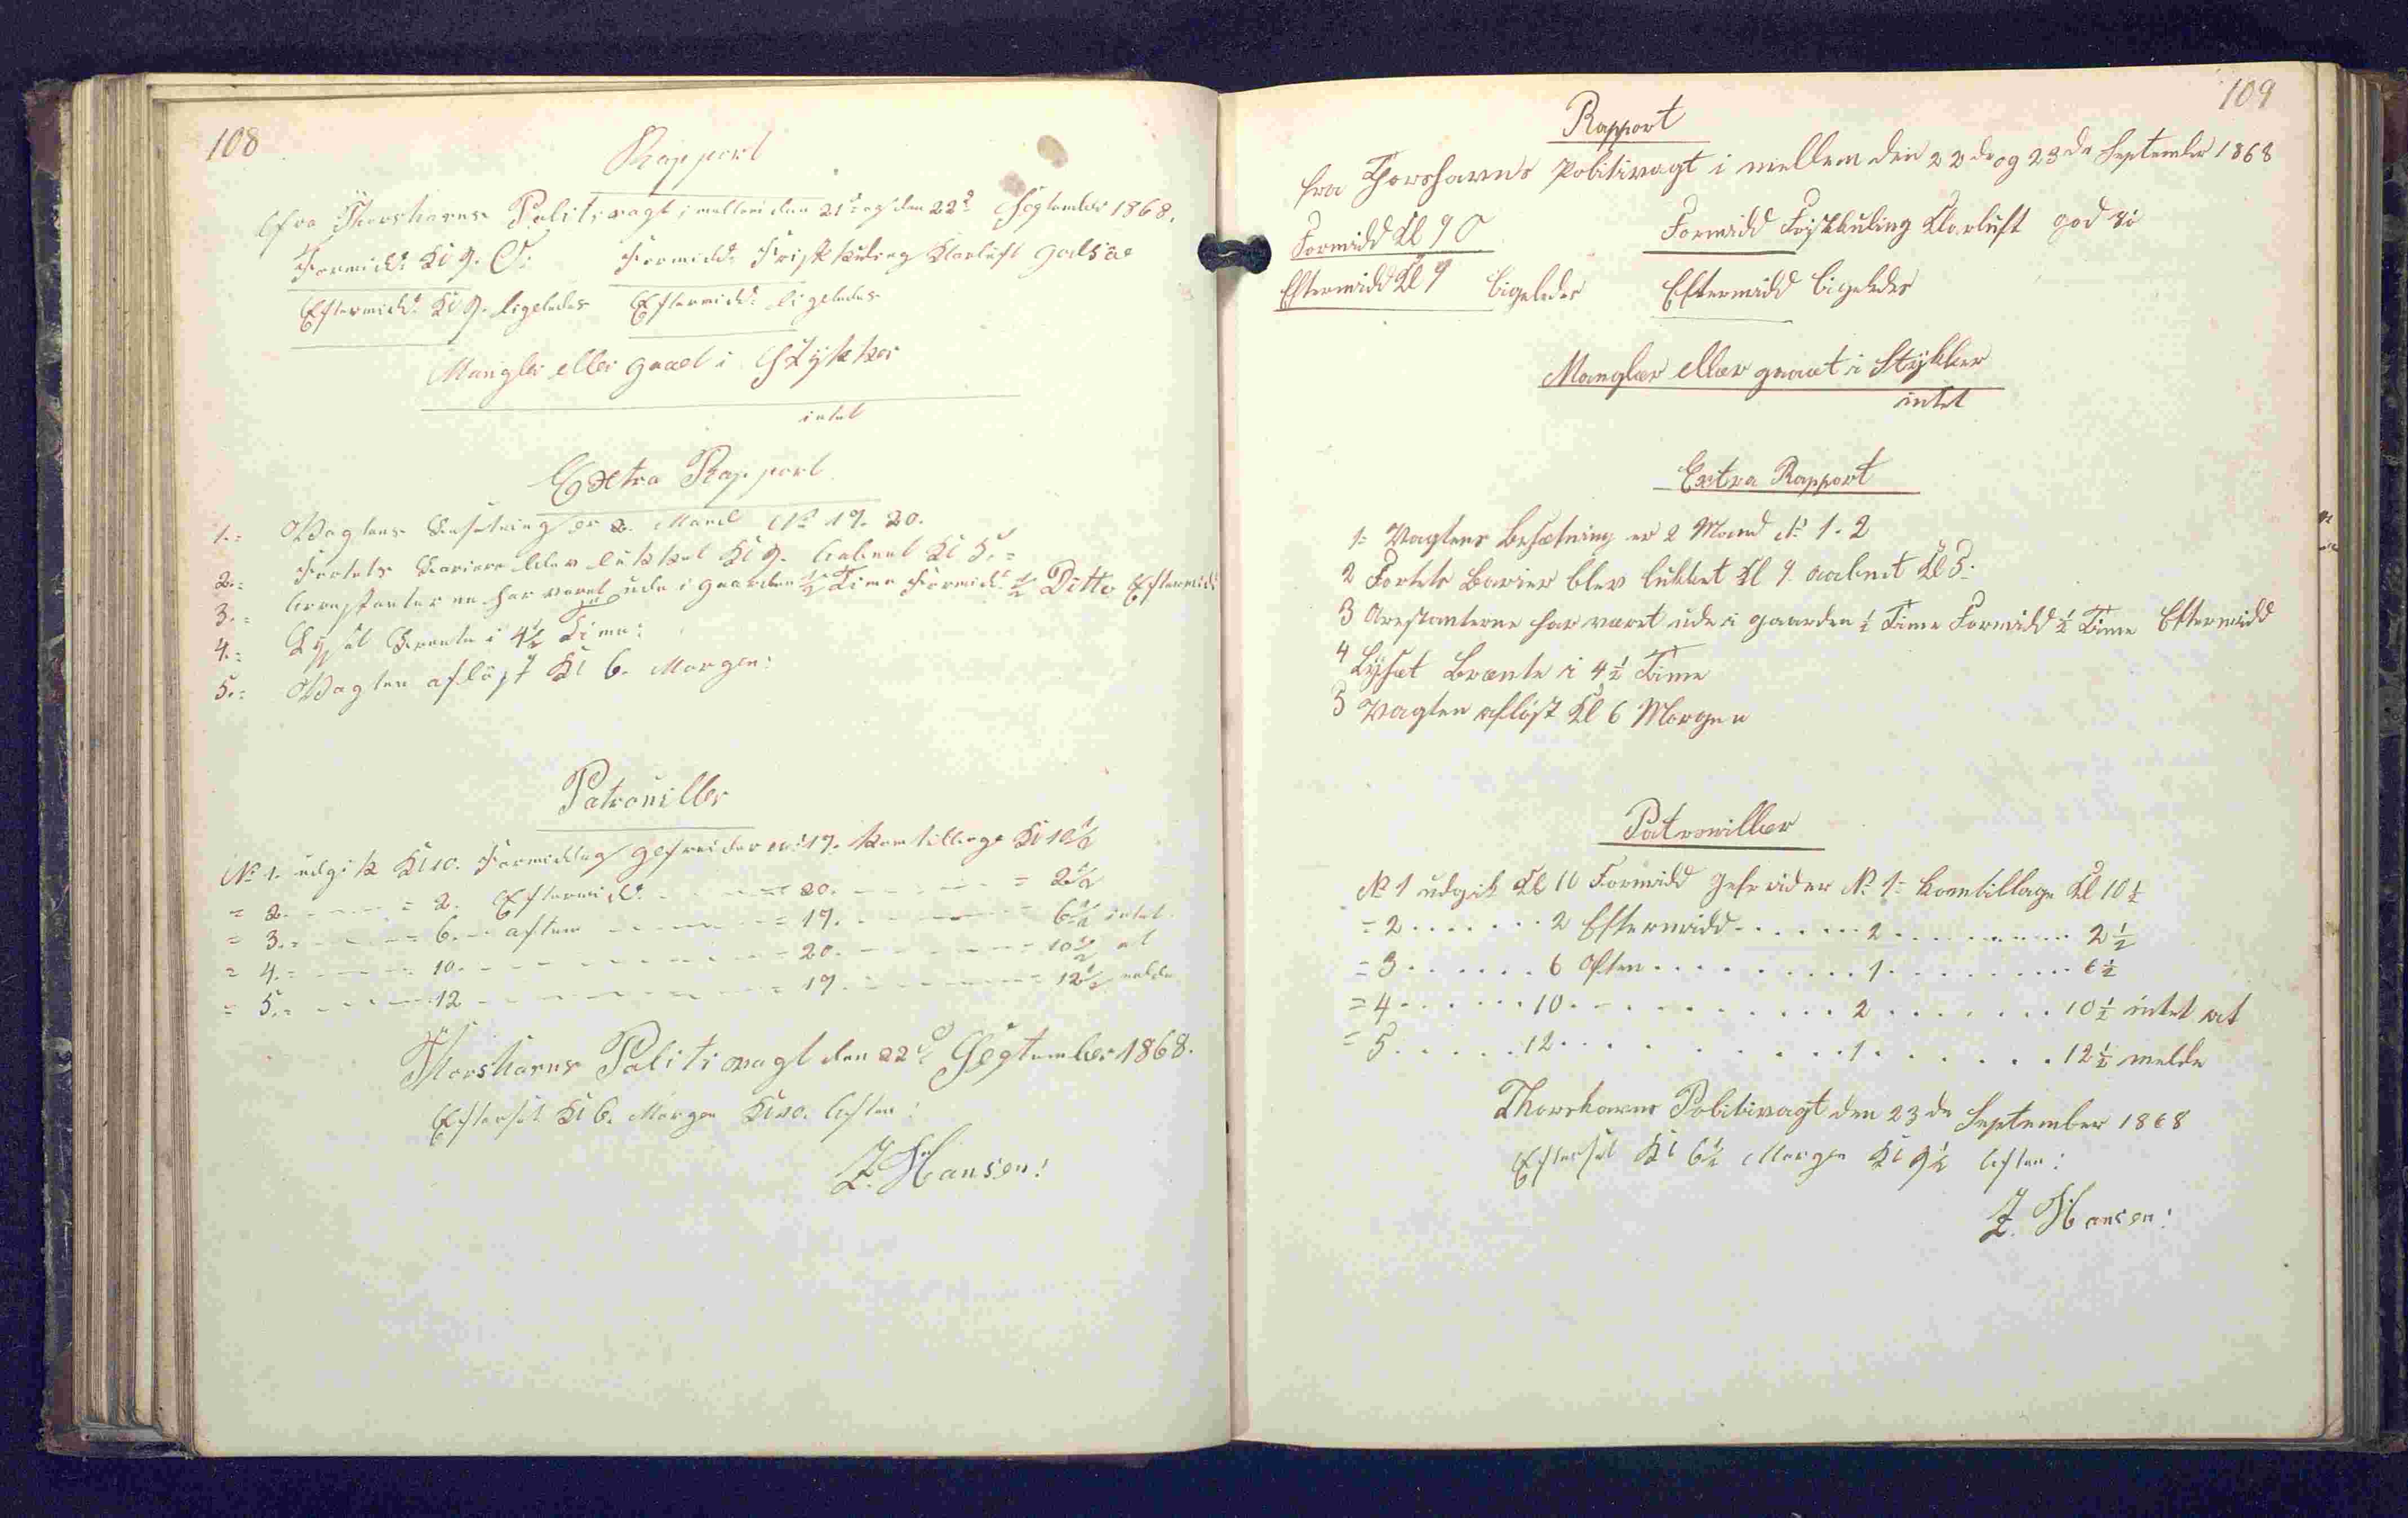 108
Rapport
fra Thorshavns Politivagt imellem den 21de og den 22de September 1868.
Formidd: Kl 9. O: Formidd: Friskkuling Klarluft god Sæ
Eftermidd: Kl 9. ligeledes Eftermidd: ligeledes
Mangler eller gaaet i Stykker
intet
Extra Rapport
1.= Vagtens Besætning er 2. Mand No 19. 20.
2.= Fortets Bariere blev lukket Kl 9. aabnet Kl 5.=
3.= Arrestanterne har været ude i gaarden ½ Time Formidd: ½ Ditto Eftermidd
4.= Lyset Brente i 4½ Time:
5.= Vagten afløst Kl 6. Morgen:
Patrouiller
No 1. udgik Kl 10. Formiddag gefreider No 19. kom tillage Kl 10½
= 2. - - - = 2. Eftermidd: - - - = 20. - - - = 2½
= 3.= - - - = 6. - aften - - - = 19. - - - = 6½ intet
= 4.= - - - = 10. - - - = 20. - - - = 10½ at
= 5.= - - - 12 - - - = 19. - - - = 12½ melde
Thorshavns Politivagt den 22de September 1868.
Efterset Kl 6. Morgen Kl 10. Aften:
Z. Hansen!
109
Rapport
fra Thorshavns Politivagt i mellem den 22de og 23de September 1868
Formidd Kl 9 O Formidd Friskkuling Klarluft god Sö
Eftermidd Kl 9 ligeledes Eftermidd ligeledes
Manglær ellær gaaet i Stykker
intet
Extra Rapport
1= Vagtens Besætning er 2 Mand No 1. 2
2 Fortets Barier blev lukket Kl 9. aabnet Kl 5.
3 Arestanterne har været ude i gaarden ½ Time Formidd ½ Time Eftermidd
4 Lyset Brænte i 4½ Time
5 Vagten afløst Kl 6 Morgen
Patrouillær
No 1 udgik Kl 10 Formidd gefreider No 1= kom tillage Kl 10½
= 2 . . . . . . . 2 Eftermidd . . . . . . 2 . . . . . . . . 2½
= 3 . . . . . . 6 Aften . . . . . . . . 1 . . . . . . . . 6½
= 4 . . . . . . 10 . . . . . . . . . . 2 . . . . . . . 10½ intet at
= 5 . . . . . 12 . . . . . . . . . . 1 . . . . . . 12½ melde
Thorshavns Politivagt den 23de September 1868
Efterset Kl 6½ Morgen Kl 9½ Aften:
Z. Hansen!